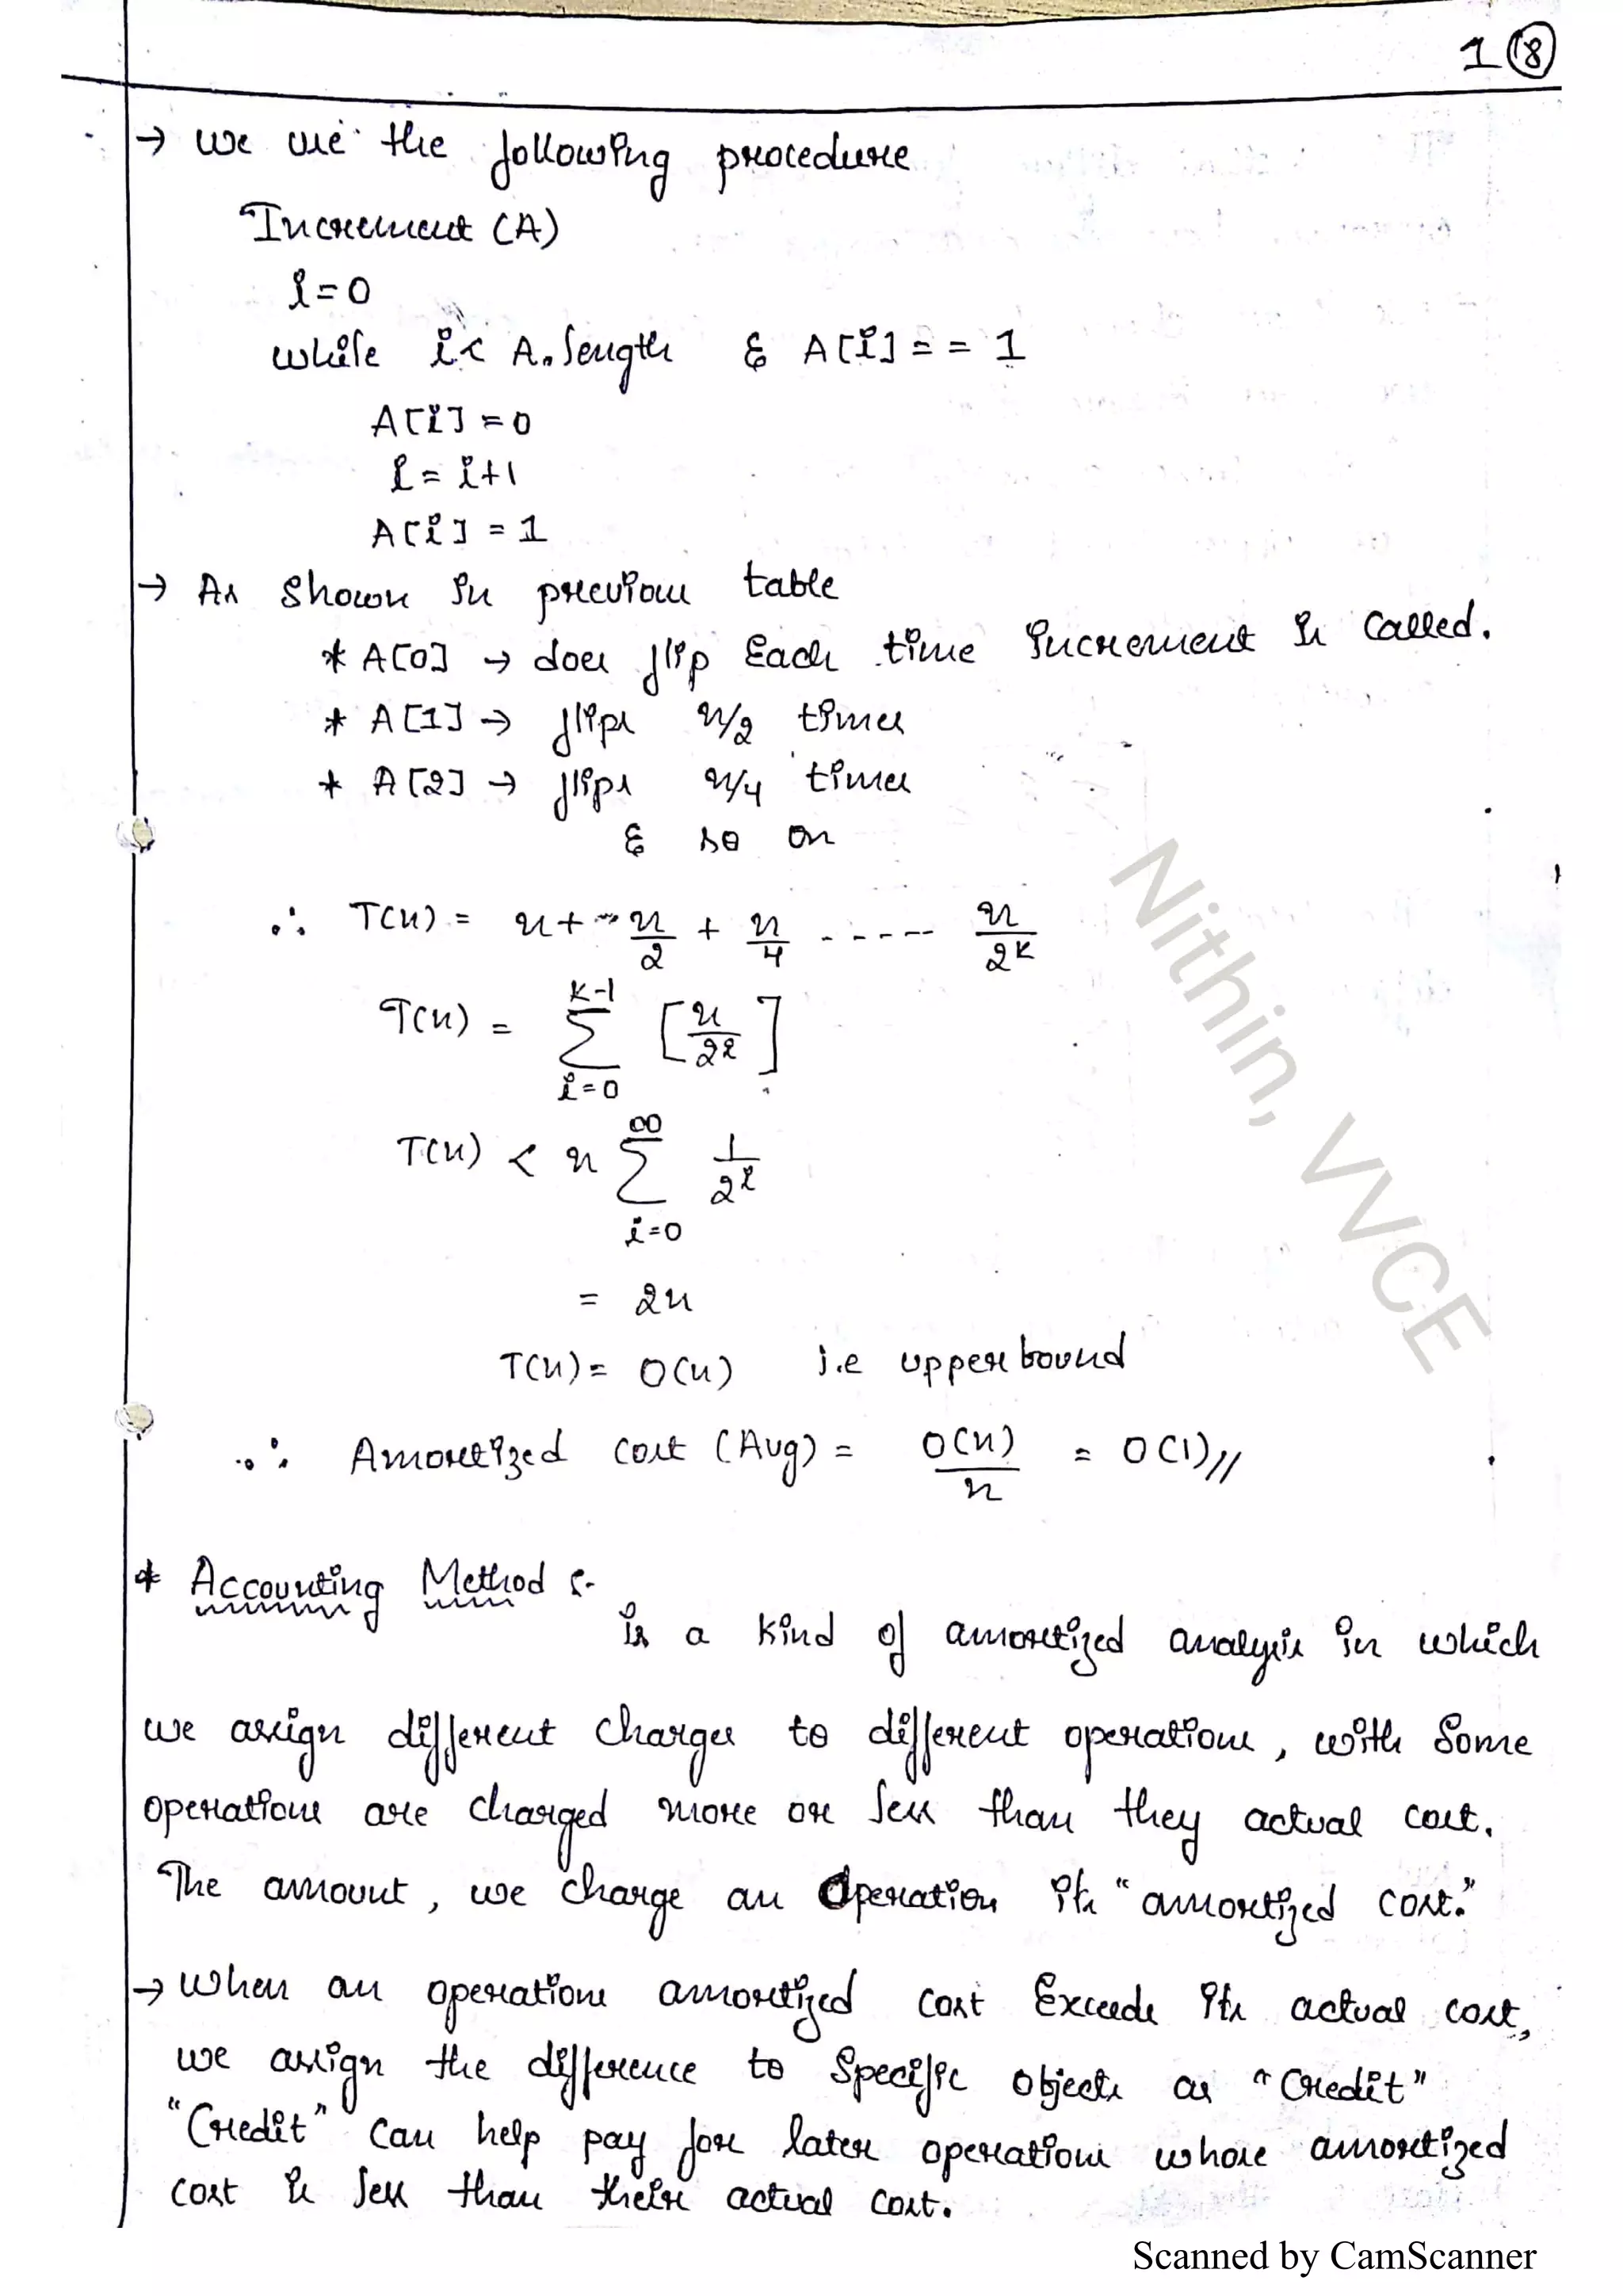 1 (18)
→ we use the following procedure
Increment (A)
i=0
while i< A.length & A[i] == 1
A[i] = 0
i = i+1
A[i] = 1
→ As shown in previous table
* A[0] → does flip Each time increment is called.
* A[1] → flips n/2 times
* A[2] → flips n/4 times
& so on
∴ T(n) = n + n/2 + n/4 ----- n/2^k
T(n) = Σ_{i=0}^{k-1} [n/2^i]
T(n) < n Σ_{i=0}^{∞} 1/2^i
= 2n
T(n) = O(n) i.e upper bound
∴ Amortized cost (Avg) = O(n)/n = O(1)//
* Accounting Method :-
is a kind of amortized analysis in which
we assign different charges to different operations, with Some
operations are charged more or less than they actual cost.
The amount, we charge an Operation its "amortized cost."
→ When an operations amortized cost Exceeds its actual cost,
we assign the difference to Specific objects as "Credit"
"Credit" can help pay for later operations whose amortized
cost is less than their actual cost.
Nithin, VVCE
Scanned by CamScanner